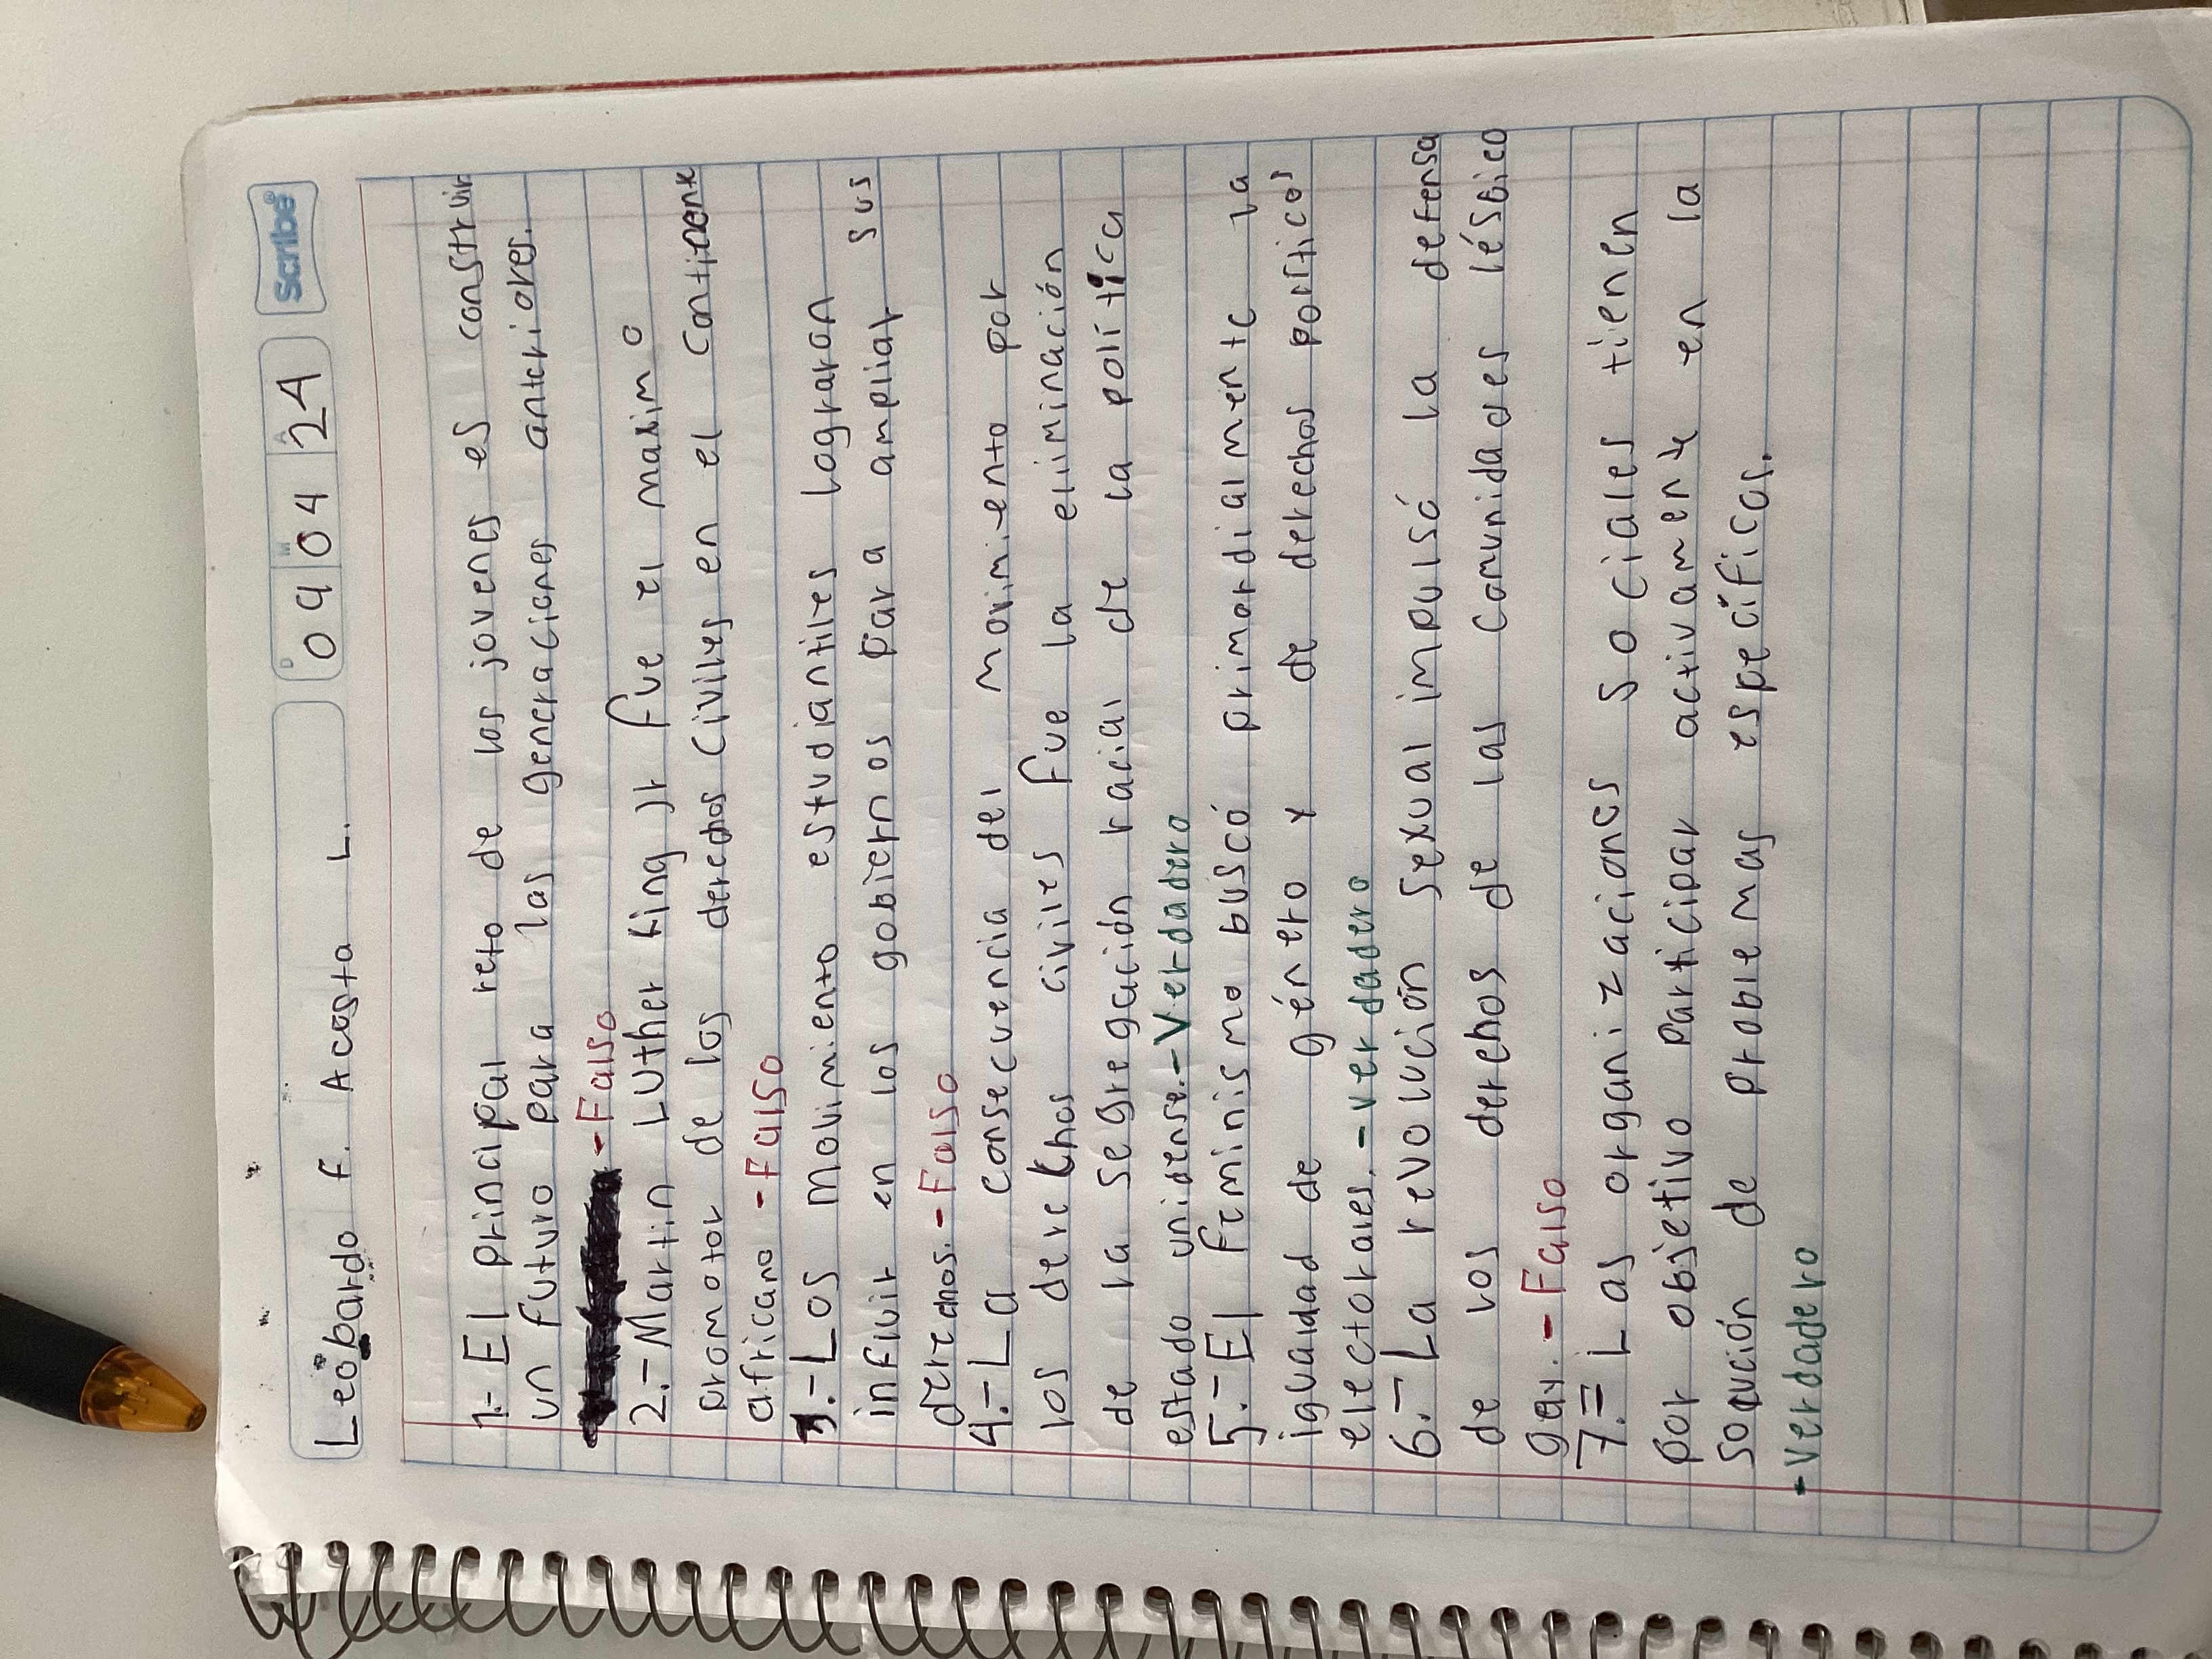 Scribe
D M A
09 04 24
Leobardo F. Acosta L.
1.- El principal reto de los jovenes es construir
un futuro para las generaciones anteriores.
-Falso
2.-Martin Luther King Jr fue el maximo
promotor de los derechos civiles en el continente
africano -Falso
3.-Los movimiento estudiantiles lograron
influir en los gobiernos para ampliar sus
derechos.-Falso
4.-La consecuencia del movimiento por
los derechos civiles fue la eliminación
de la segregación racial de la política
estado unidense.-Verdadero
5.-El feminismo buscó primordialmente la
igualdad de género y de derechos políticos
electorales.-verdadero
6.-La revolución sexual impulsó la defensa
de los derehos de las comunidades lésbico
gay.-Falso
7.=Las organizaciones sociales tienen
por objetivo participar activamente en la
solución de problemas específicos.
-Verdadero